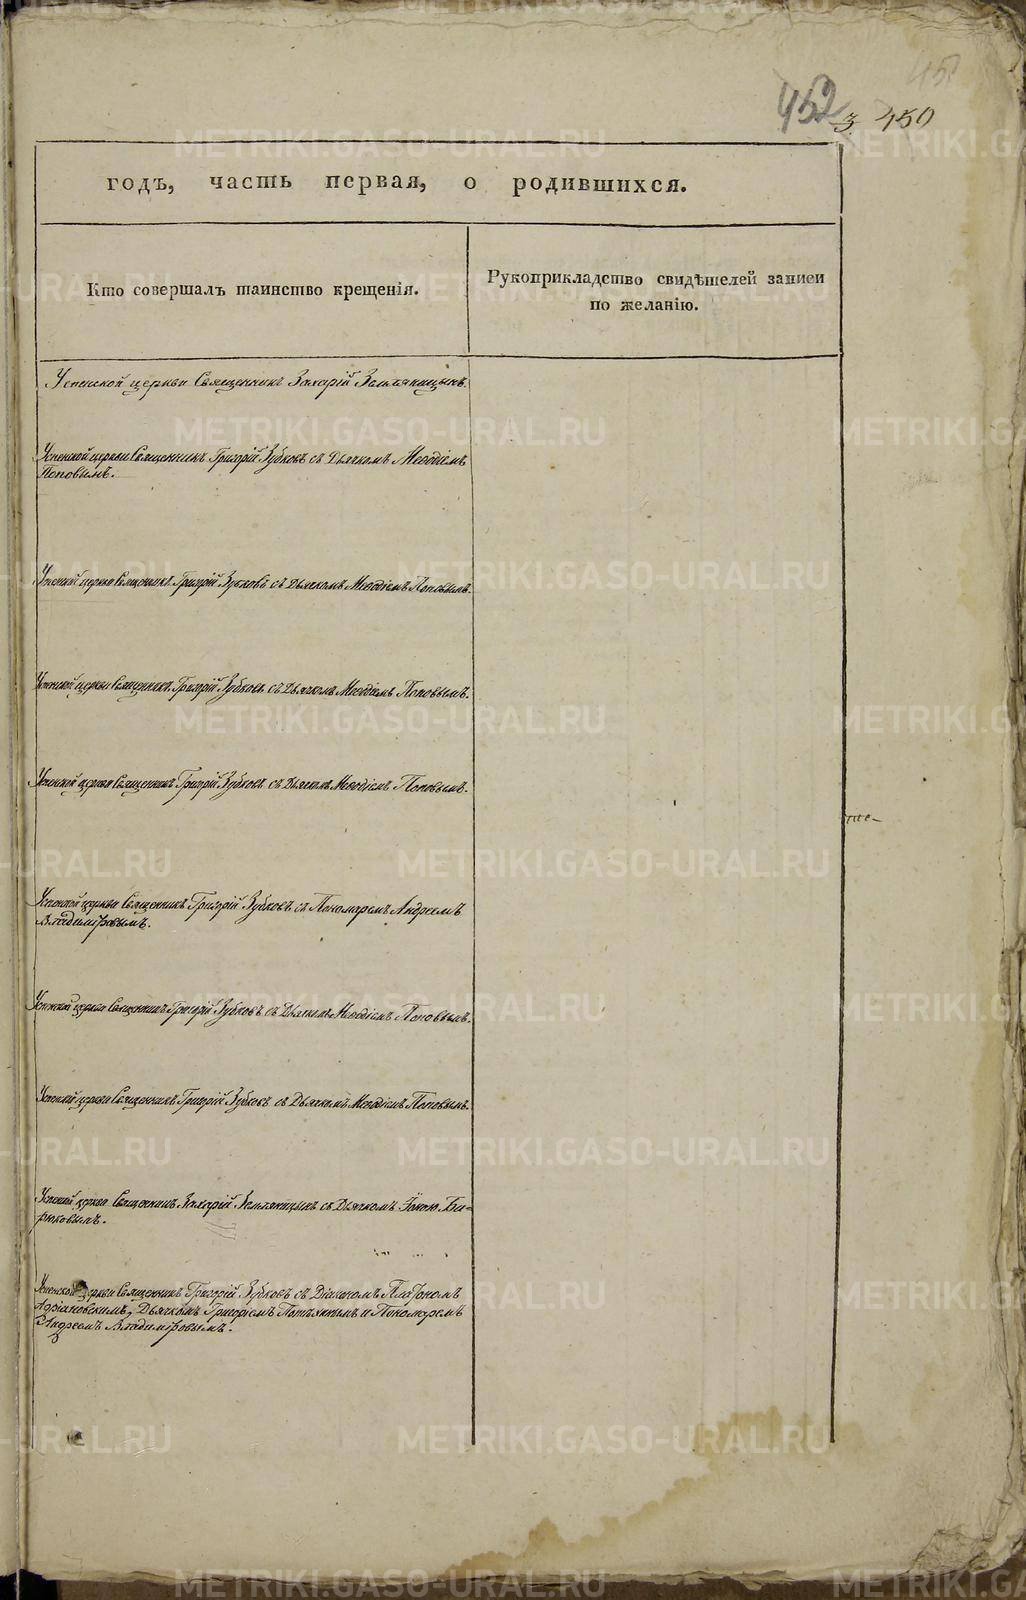 452 3 450
годъ, часть первая, о родившихся.
Кто совершалъ таинство крещенія.
Рукоприкладство свидѣтелей записи
по желанію.
Успенской церкви Священникъ Захарій Земляницынъ.
Успенской церкви Священникъ Григорій Зубковъ съ Дьячкомъ Меѳодіемъ
Поповымъ.
Успенской церкви Священникъ Григорій Зубковъ съ Дьячкомъ Меѳодіемъ Поповымъ.
Успенской церкви Священникъ Григорій Зубковъ съ Дьячкомъ Меѳодіемъ Поповымъ.
Успенской церкви Священникъ Григорій Зубковъ съ Дьячкомъ Меѳодіемъ Поповымъ.
Успенской церкви Священникъ Григорій Зубковъ съ Пономаремъ Андреемъ
Владиміровымъ.
Успенской церкви Священникъ Григорій Зубковъ съ Дьячкомъ Меѳодіемъ Поповымъ.
Успенской церкви Священникъ Григорій Зубковъ съ Дьячкомъ Меѳодіемъ Поповымъ.
Успенской церкви Священникъ Захарій Земляницынъ съ Дьячкомъ Іоною Би-
рюковымъ.
Успенской церкви Священникъ Григорій Зубковъ съ Діакономъ Платономъ
Адріановскимъ, Дьячкомъ Григоріемъ и Пономаремъ
Андреемъ Владиміровымъ.
METRIKI.GASO-URAL.RU